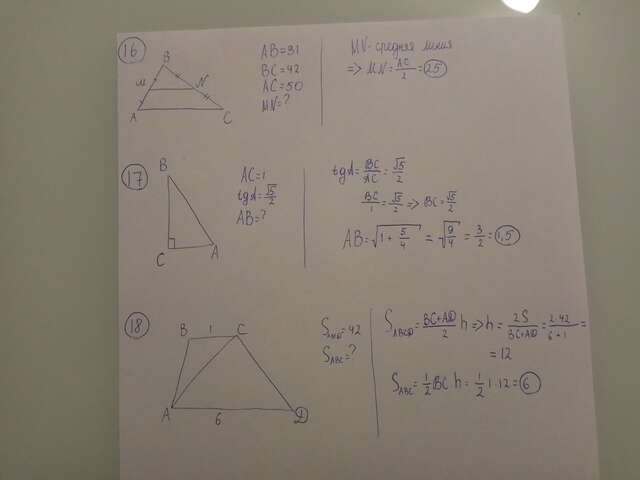 16
B
M
N
A
C
AB=31
BC=42
AC=50
MN=?
MN- средняя линия
=> MN=AC/2=25
17
B
C
A
AC=1
tgA=√5/2
AB=?
tgA=BC/AC=√5/2
BC/1=√5/2=>BC=√5/2
AB=√1+5/4=√9/4=3/2=1,5
18
B 1 C
A 6 D
S ABCD=42
S ABC=?
S ABCD=BC+AD/2 h=>h=2S/BC+AD=2·42/6+1=
=12
S ABC=1/2 BC h=1/2 1·12=6